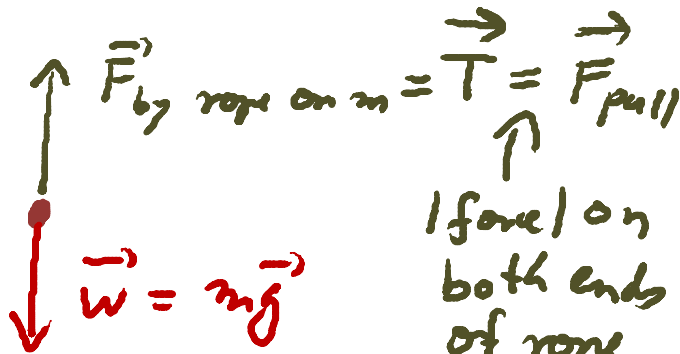 F⃗ by rope on m = T⃗ = F⃗ pull
|force| on
both ends
of rope
w⃗ = mg⃗